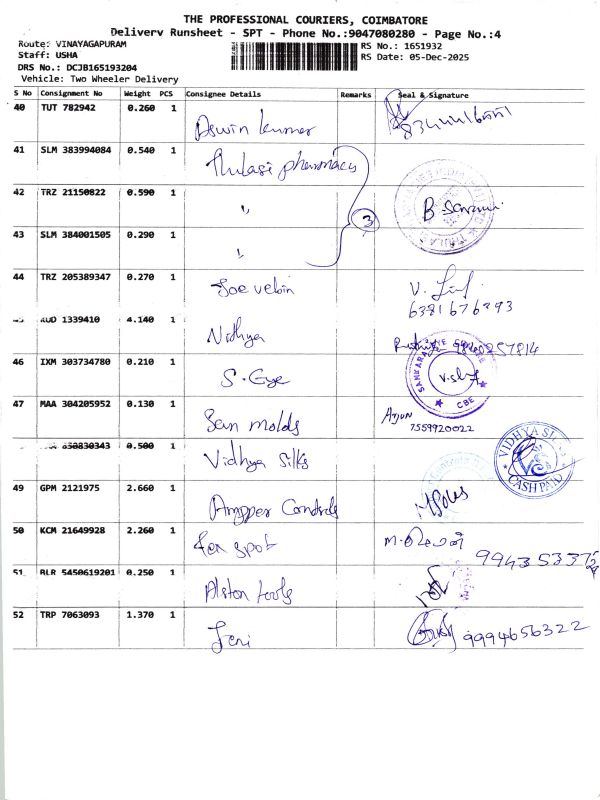 THE PROFESSIONAL COURIERS, COIMBATORE
Delivery Runsheet - SPT - Phone No.:9047080280 - Page No.:4
Route: VINAYAGAPURAM
Staff: USHA
DRS No.: DCJB165193204
Vehicle: Two Wheeler Delivery
RS No.: 1651932
RS Date: 05-Dec-2025
S No Consignment No Weight PCS Consignee Details Remarks Seal & Signature
40 TUT 782942 0.260 1 Aswin kumar
41 SLM 383994084 0.540 1 Thulasi pharmacy
42 TRZ 21150822 0.590 1 "
3
B
43 SLM 384001505 0.290 1 "
44 TRZ 205389347 0.270 1 Joe vebin
V.
6381676293
1339410 4.140 1 Nidhya
46 IXM 303734780 0.210 1 S. Eye
SANKARA EYE
CBE
47 MAA 304205952 0.130 1 San molds
Arjun
7559920022
850830343 0.500 1 Vidhya silks
VIDHYA SILKS
CASH PAID
49 GPM 2121975 2.660 1 Ampper Controls
50 KCM 21649928 2.260 1 Fen spot
51 BLR 5450619201 0.250 1 Alston tools
52 TRP 7063093 1.370 1 Jeni
9994656322